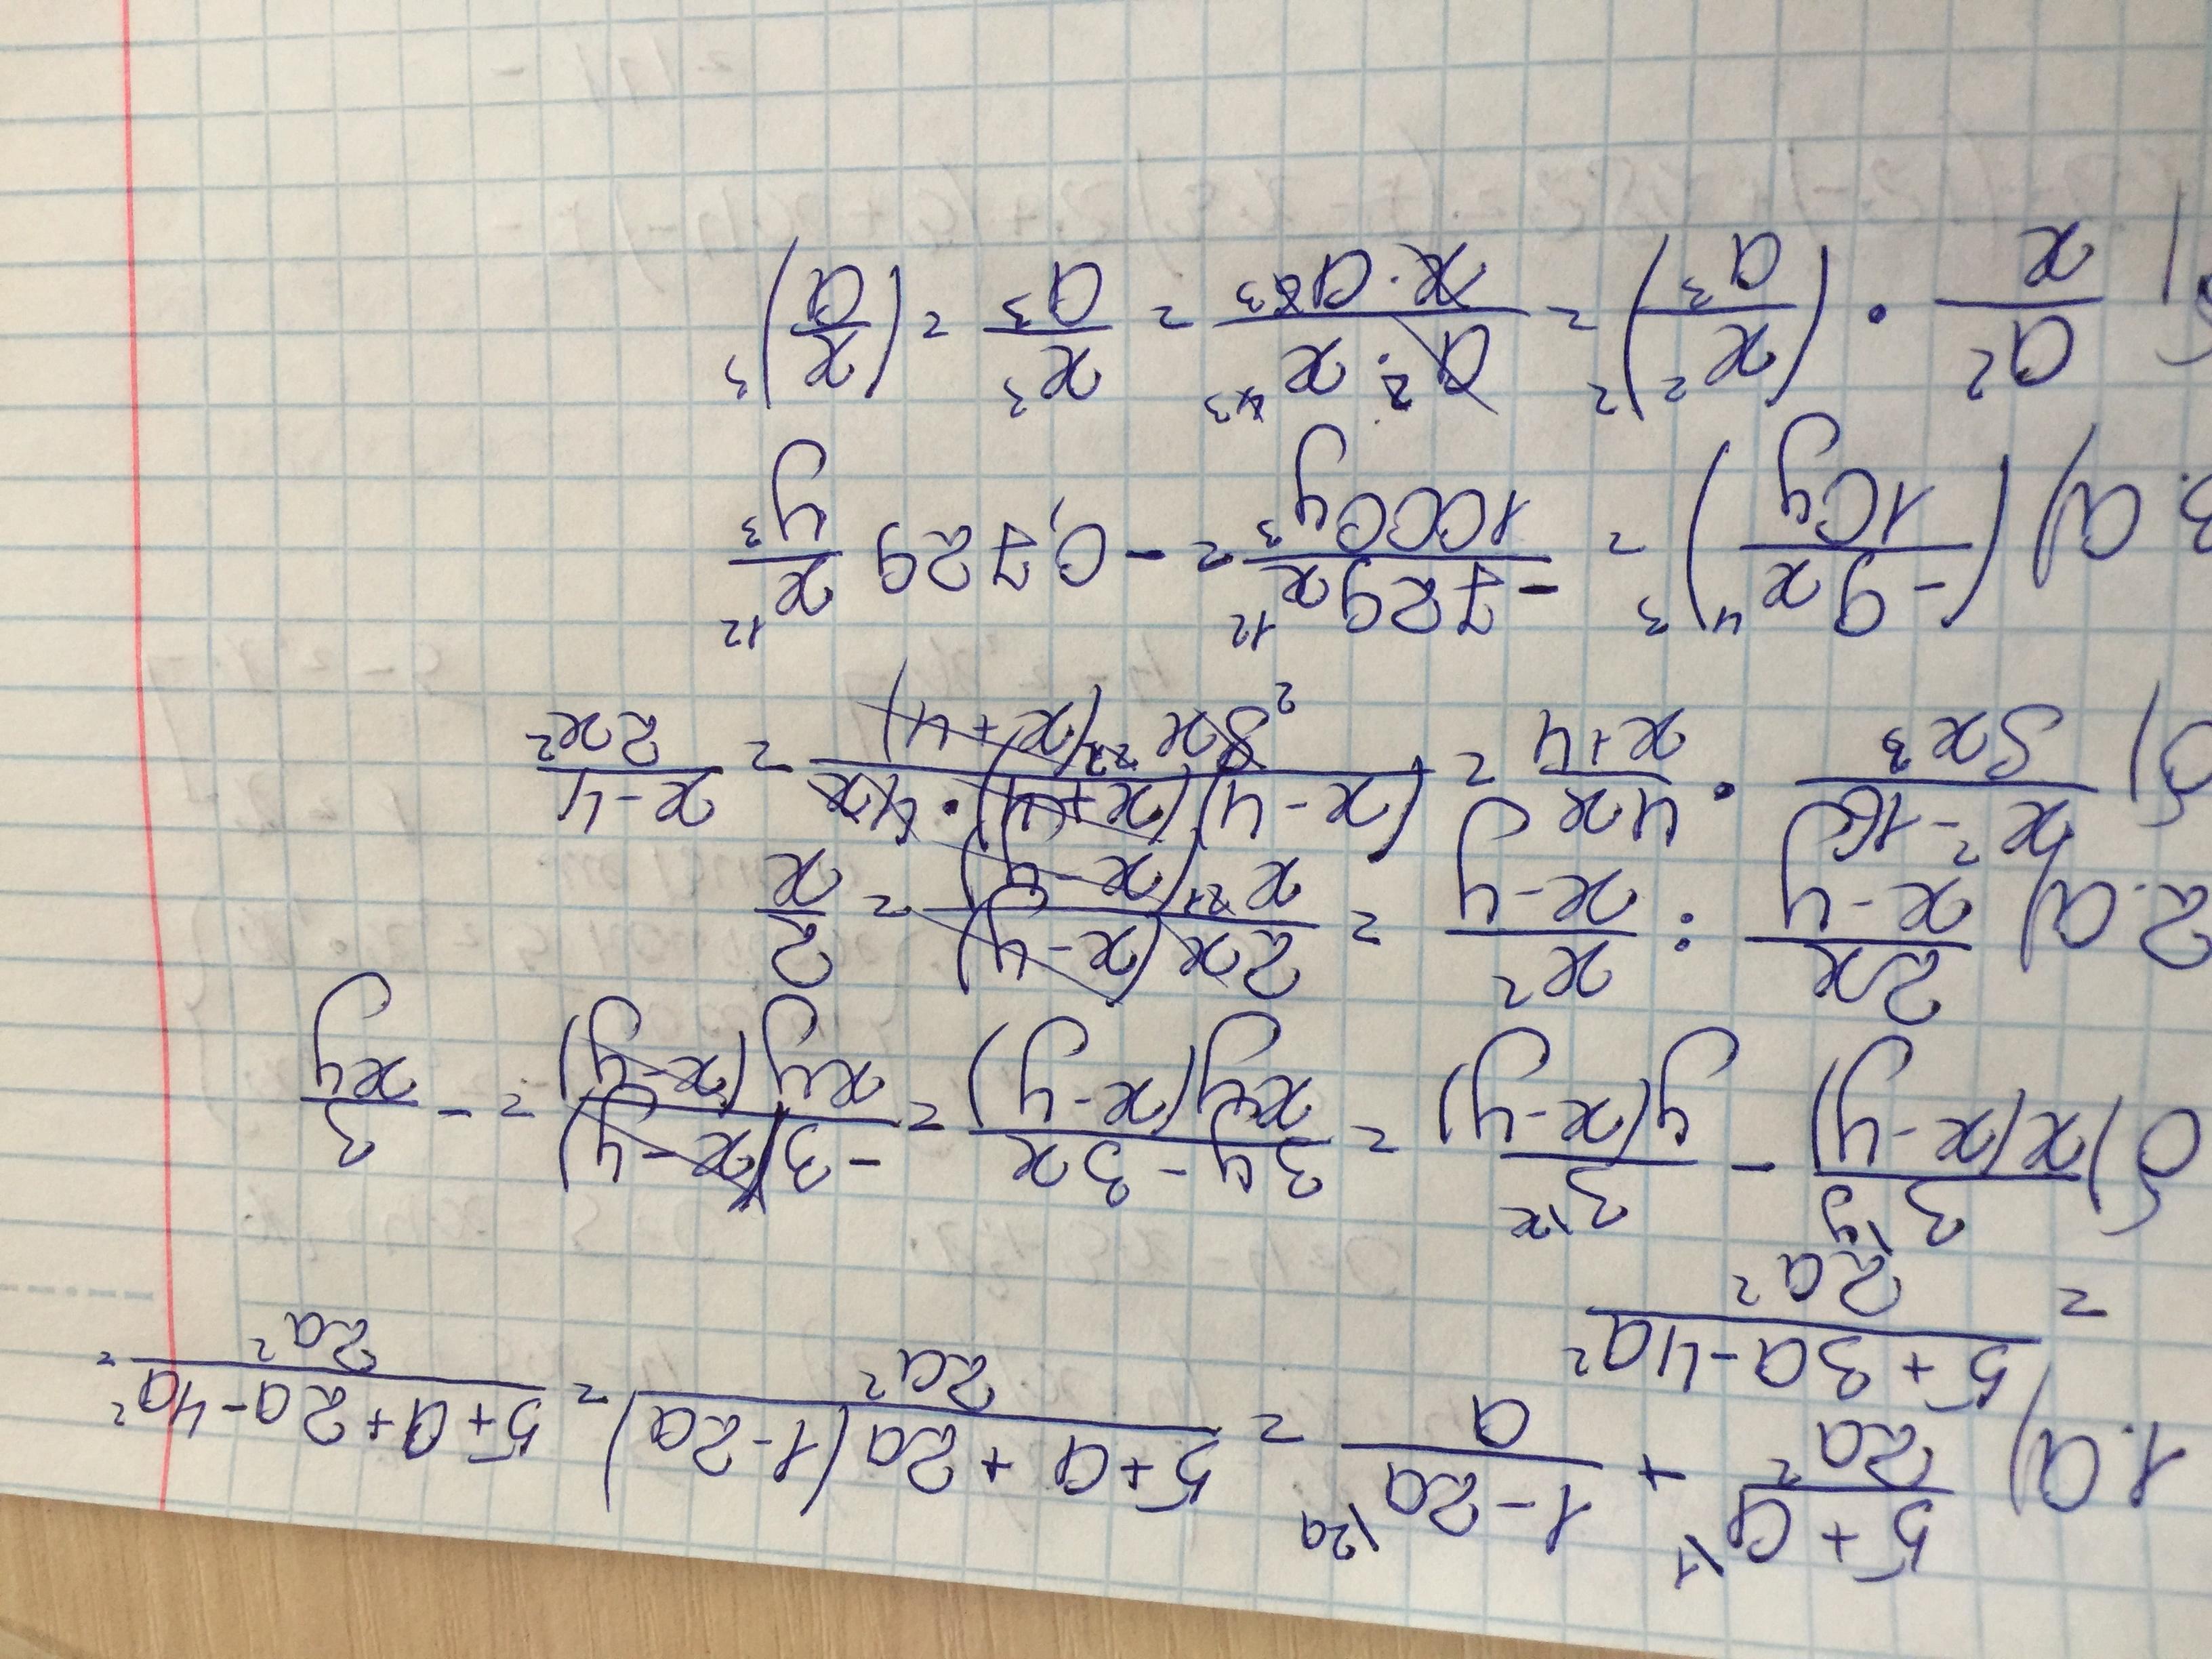 1. а) (5+a^{\1})/(2a²) + (1-2a^{\2a})/a = (5+a+2a(1-2a))/(2a²) = (5+a+2a-4a²)/(2a²) =
= (5+3a-4a²)/(2a²)
б) 3^{\y}/(x(x-y)) - 3^{\x}/(y(x-y)) = (3y-3x)/(xy(x-y)) = (-3(x-y))/(xy(x-y)) = - 3/(xy)
2. а) 2x/(x-y) : x²/(x-y) = (2x(x-y))/(x²(x-y)) = 2/x
б) (x²-16)/(8x³) · 4x/(x+4) = ((x-4)(x+4)·4x)/(8x³(x+4)) = (x-4)/(2x²)
3. а) (-9x⁴/(10y))³ = (-729x¹²)/(1000y³) = -0,729 x¹²/y³
б) a²/x · (x²/a³)² = (a²·x⁴)/(x·a⁶) = x³/a³ = (x/a)³